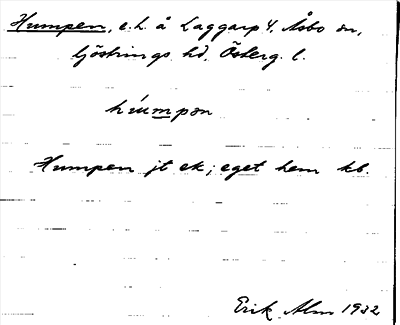 Humpen, e. l. å Laggarp 4, Åsbo sn,
Göstrings hd, Österg. l.
húumpən
Humpen jt ek; eget hem kb.
Erik Alm 1932